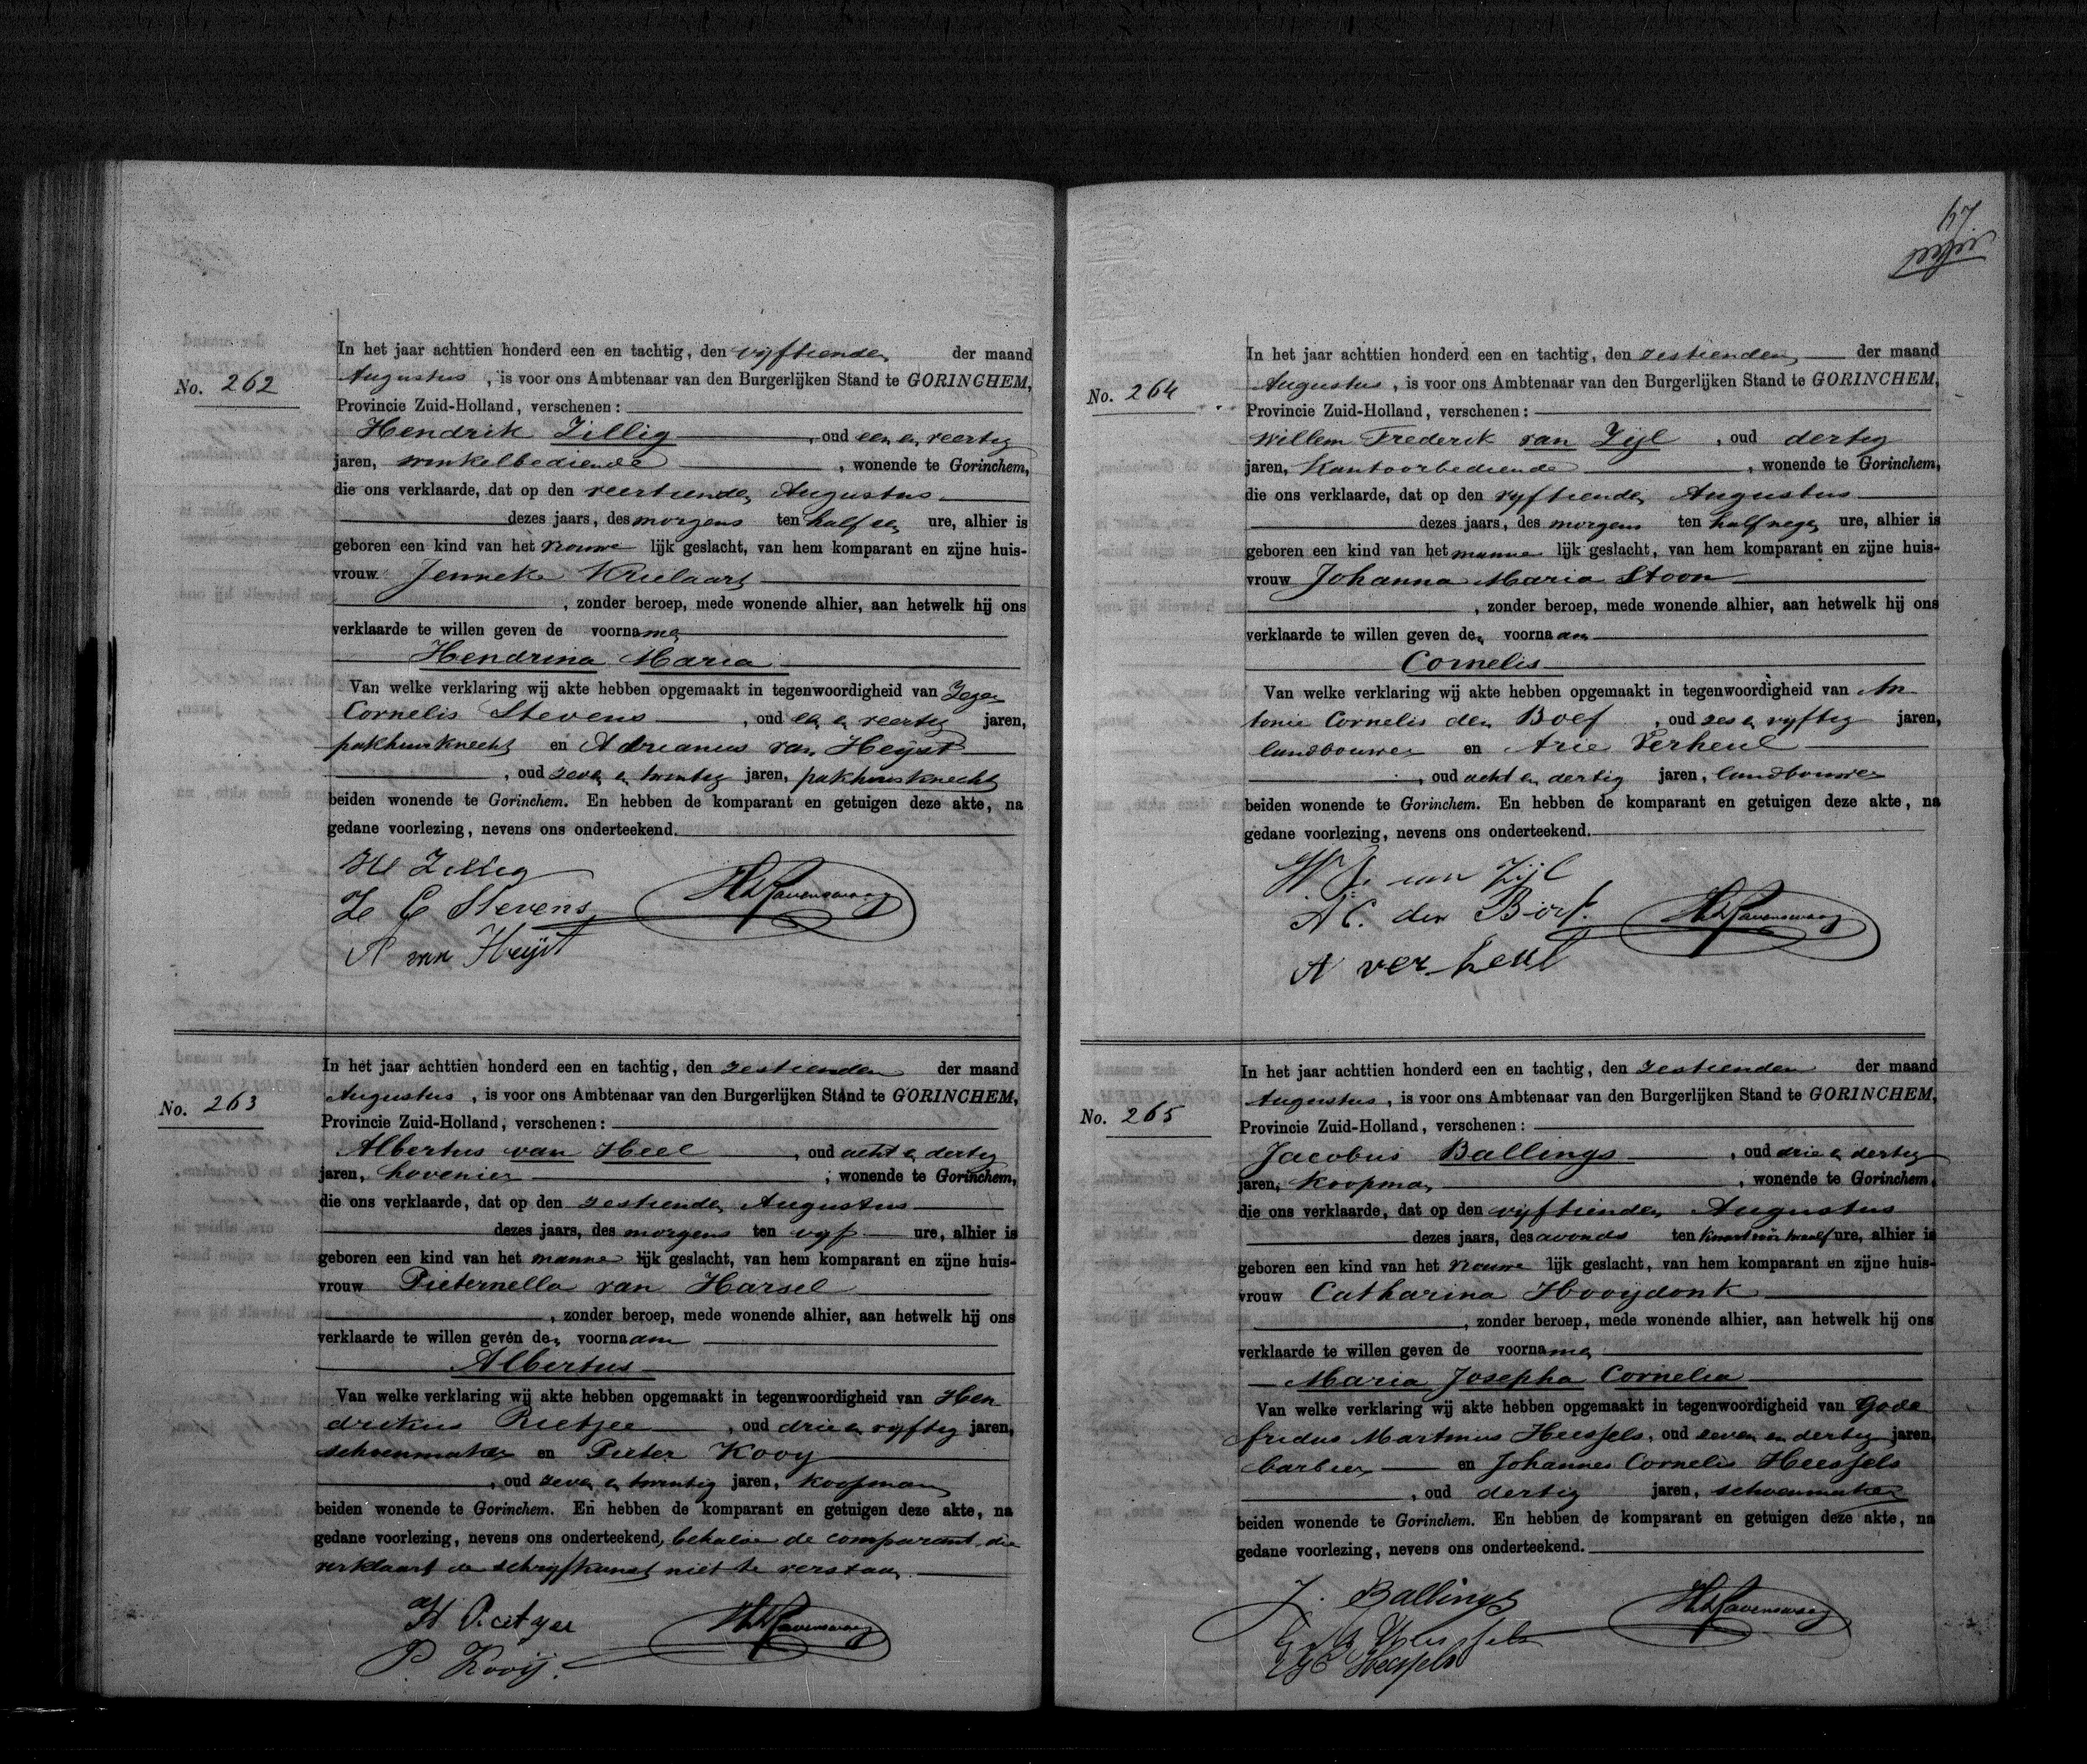 No. 262
In het jaar achttien honderd een en tachtig, den vijftienden der maand
Augustus, is voor ons Ambtenaar van den Burgerlijken Stand te GORINCHEM,
Provincie Zuid-Holland, verschenen:
Hendrik Zillig, oud een en veertig
jaren, winkelbediende, wonende te Gorinchem,
die ons verklaarde, dat op den veertienden Augustus
dezes jaars, des morgens ten half een ure, alhier is
geboren een kind van het vrouwe lijk geslacht, van hem komparant en zijne huis-
vrouw Jenneke Krielaart
, zonder beroep, mede wonende alhier, aan hetwelk hij ons
verklaarde te willen geven de voornamen
Hendrina Maria
Van welke verklaring wij akte hebben opgemaakt in tegenwoordigheid van Zeger
Cornelis Stevens, oud een en veertig jaren,
pakhuisknecht en Adrianus van Heijst
, oud zeven en twintig jaren, pakhuisknecht
beiden wonende te Gorinchem. En hebben de komparant en getuigen deze akte, na
gedane voorlezing, nevens ons onderteekend.
H Zillig
Z C Stevens
A van Heijst
No. 263
In het jaar achttien honderd een en tachtig, den zestienden der maand
Augustus, is voor ons Ambtenaar van den Burgerlijken Stand te GORINCHEM,
Provincie Zuid-Holland, verschenen:
Albertus van Heel, oud acht en dertig
jaren, hovenier, wonende te Gorinchem,
die ons verklaarde, dat op den zestienden Augustus
dezes jaars, des morgens ten vijf ure, alhier is
geboren een kind van het manne lijk geslacht, van hem komparant en zijne huis-
vrouw Pieternella van Harsel
, zonder beroep, mede wonende alhier, aan hetwelk hij ons
verklaarde te willen geven den voornaam
Albertus
Van welke verklaring wij akte hebben opgemaakt in tegenwoordigheid van Hen
drikus Rietjee, oud drie en vijftig jaren,
schoenmaker en Pieter Kooy
, oud zeven en twintig jaren, koopman
beiden wonende te Gorinchem. En hebben de komparant en getuigen deze akte, na
gedane voorlezing, nevens ons onderteekend, behalve de comparant die
verklaart de schryfkunst niet te verstaan.
P. Kooij.
47
No. 264
In het jaar achttien honderd een en tachtig, den zestienden der maand
Augustus, is voor ons Ambtenaar van den Burgerlijken Stand te GORINCHEM,
Provincie Zuid-Holland, verschenen:
Willem Frederik van Zijl, oud dertig
jaren, Kantoorbediende, wonende te Gorinchem,
die ons verklaarde, dat op den vyftienden Augustus
dezes jaars, des morgens ten half negen ure, alhier is
geboren een kind van het manne lijk geslacht, van hem komparant en zijne huis-
vrouw Johanna Maria Stoon
, zonder beroep, mede wonende alhier, aan hetwelk hij ons
verklaarde te willen geven den voornaam
Cornelis
Van welke verklaring wij akte hebben opgemaakt in tegenwoordigheid van An
tonie Cornelis den Boef, oud zes en vyftig jaren,
landbouwer en Arie Verheul
, oud acht en dertig jaren, landbouwer
beiden wonende te Gorinchem. En hebben de komparant en getuigen deze akte, na
gedane voorlezing, nevens ons onderteekend.
W F. van Zijl
A C. den Boef.
A verheul
No. 265
In het jaar achttien honderd een en tachtig, den zestienden der maand
Augustus, is voor ons Ambtenaar van den Burgerlijken Stand te GORINCHEM,
Provincie Zuid-Holland, verschenen:
Jacobus Ballings, oud drie en dertig
jaren, koopman, wonende te Gorinchem,
die ons verklaarde, dat op den vyftienden Augustus
dezes jaars, des avonds ten kwart voor twaalf ure, alhier is
geboren een kind van het vrouwe lijk geslacht, van hem komparant en zijne huis-
vrouw Catharina Hooijdonk
, zonder beroep, mede wonende alhier, aan hetwelk hij ons
verklaarde te willen geven de voornamen
Maria Josepha Cornelia
Van welke verklaring wij akte hebben opgemaakt in tegenwoordigheid van Gode
fridus Martinus Heessels, oud zeven en dertig jaren,
barbier en Johannes Cornelis Heessels
, oud dertig jaren, schoenmaker
beiden wonende te Gorinchem. En hebben de komparant en getuigen deze akte, na
gedane voorlezing, nevens ons onderteekend.
J. Ballings